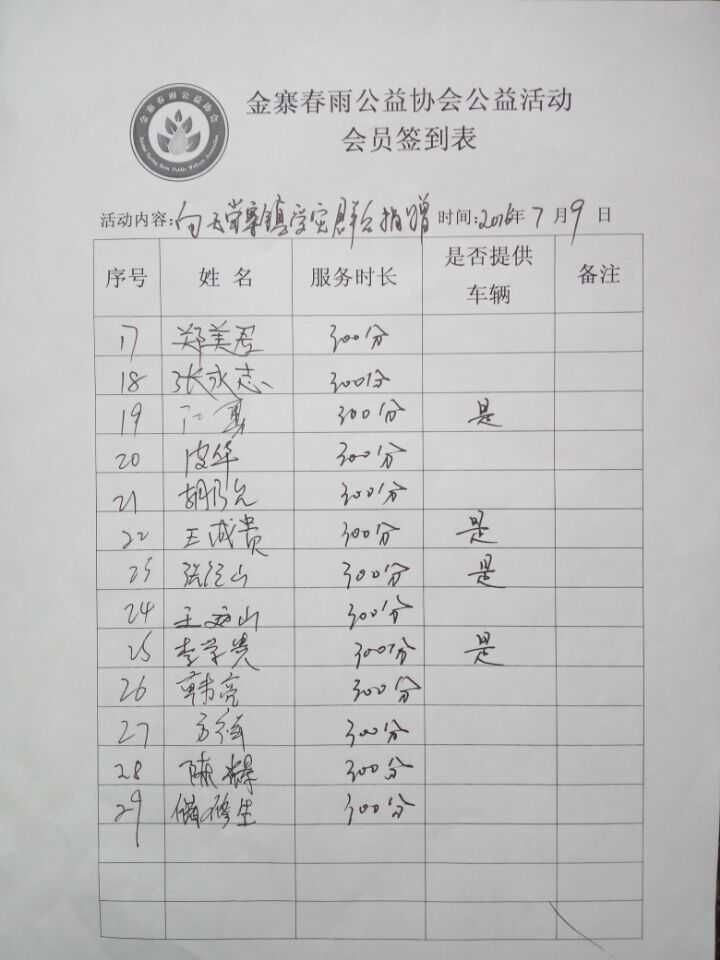 金寨春雨公益协会
金寨春雨公益协会公益活动
会员签到表
活动内容:向天堂寨镇受灾群众捐赠 时间:2016年7月9日
序号 姓名 服务时长 是否提供车辆 备注
17 郑美君 300分
18 张永志 300分
19 300分 是
20 皮华 300分
21 胡乃元 300分
22 王成贵 300分 是
23 张经山 300分 是
24 王 山 300分
25 李学贵 300分 是
26 韩亮 300分
27 方 300分
28 陈 300分
29 储修生 300分